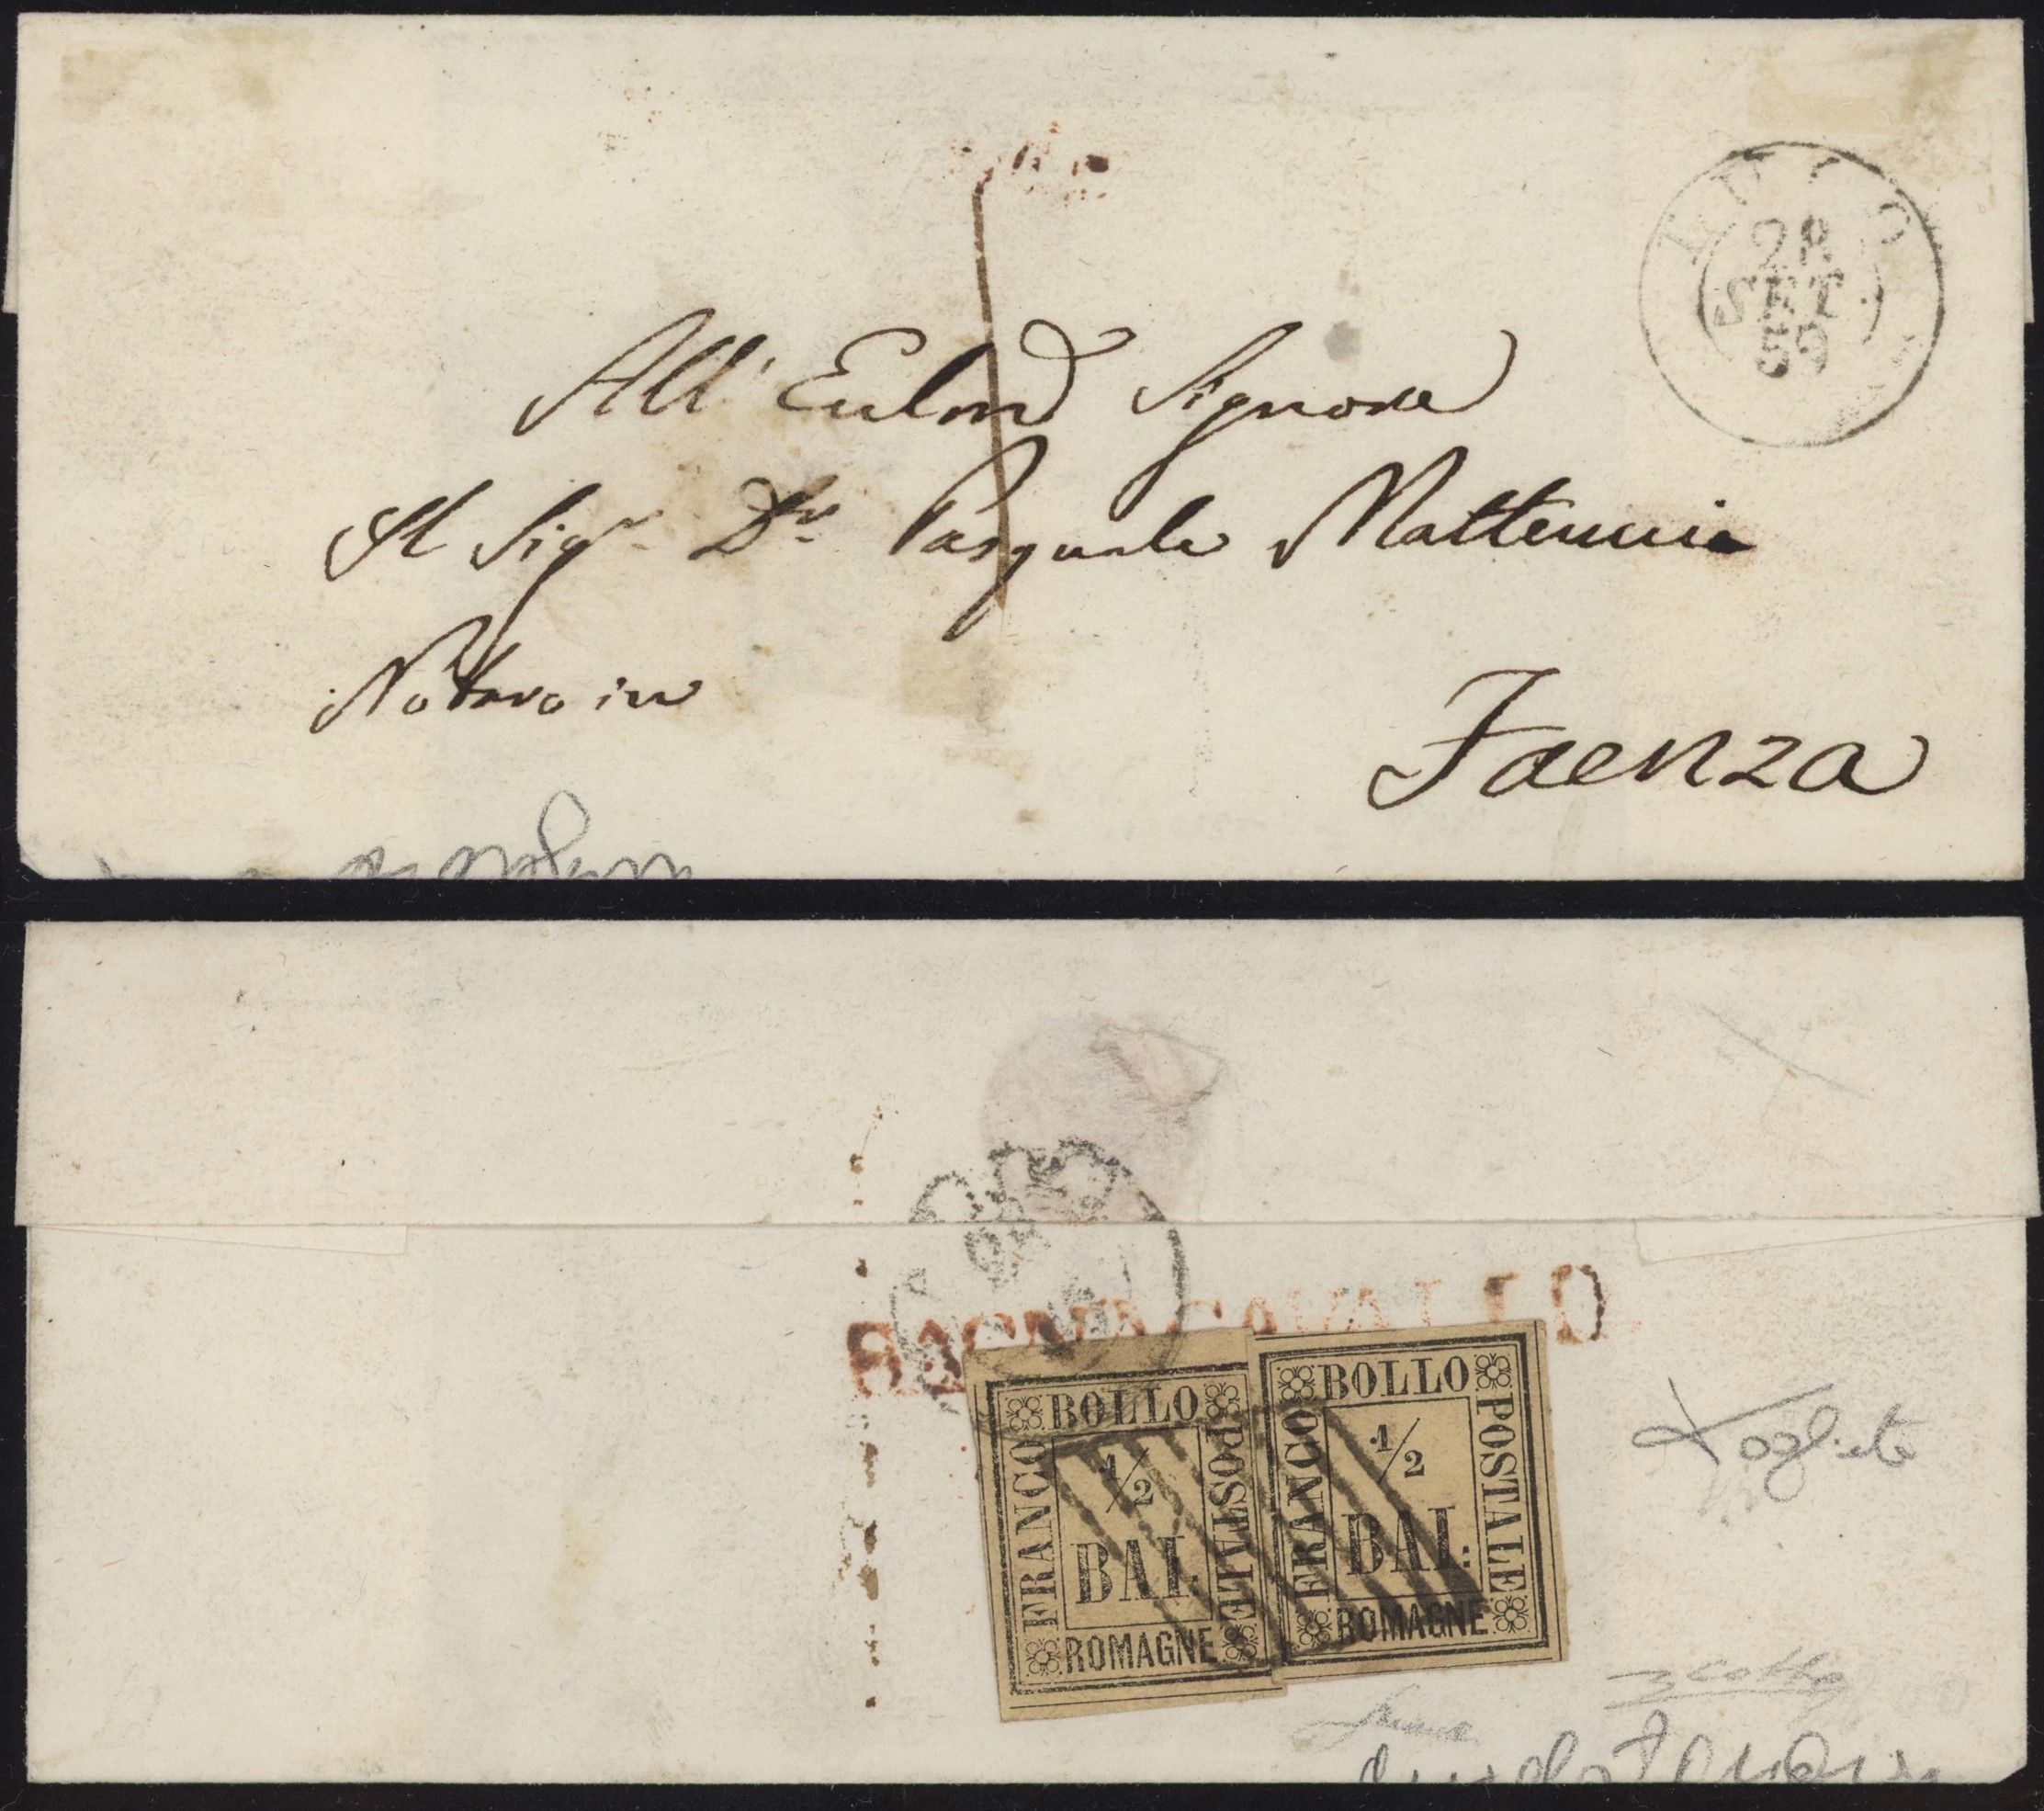 LUGO
28
SET
59
All' Signore
Il Sigr Dr Pasquale Matteucci
Notaro in
Faenza
BAGNACAVALLO
BOLLO
FRANCO
POSTALE
1/2
BAI.
ROMAGNE
BOLLO
FRANCO
POSTALE
1/2
BAI:
ROMAGNE